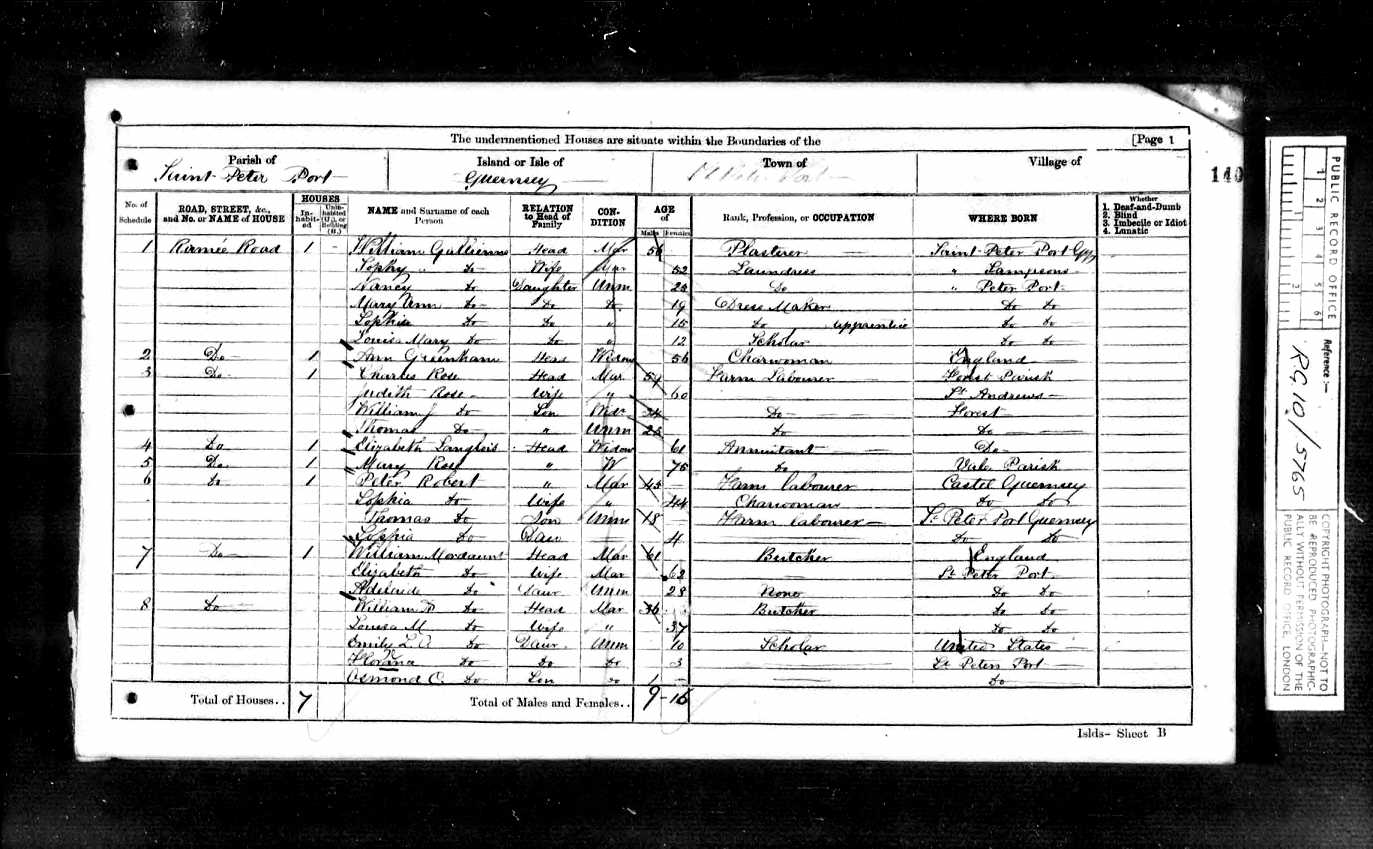 The undermentioned Houses are situate within the Boundaries of the [Page 1
Parish of Island or Isle of Town of Village of
Saint Peter Port Guernsey St Peter Port
140
No. of Schedule ROAD, STREET, &c., and No. or NAME of HOUSE HOUSES Inhabited Uninhabited (U.), or Building (B.) NAME and Surname of each Person RELATION to Head of Family CONDITION AGE of Males Females Rank, Profession, or OCCUPATION WHERE BORN Whether 1. Deaf-and-Dumb 2. Blind 3. Imbecile or Idiot 4. Lunatic
1 Ramée Road 1 - William Gallienne Head Mar 56 Plasterer Saint Peter Port
Sophy Do Wife Mar 52 Laundress " Sampsons
Nancy Do Daughter Unm Do " Peter Port
Mary Ann Do Do Do 19 Dress Maker Do Do
Sophia Do Do " 15 Do apprentice Do Do
Louisa Mary Do Do " 12 Scholar Do Do
2 Do 1 Ann Greenham Head Widow 56 Charwoman England
3 Do 1 Charles Rose Head Mar 54 Farm Labourer Forest Parish
Judith Rose Wife " 60 St Andrews
William J Do Son 24 Do Forest
Thomas Do " Unm Do Do
4 Do 1 Elizabeth Langlois Head Widow 61 Annuitant Do
5 Do 1 Mary Rose " W 76 Do Vale Parish
6 Do 1 Peter Robert " Mar 45 Farm labourer Castel Guernsey
Sophia Do Wife " 44 Charwoman Do Do
Thomas Do Son Unm 18 Farm labourer St Peter Port Guernsey
Sophia Do Daur 4 Do Do
7 Do 1 William Mordaunt Head Mar 61 Butcher England
Elizabeth Do Wife Mar 62 St Peter Port
Adelaide Do Daur Unm 28 None Do Do
8 Do William Do Head Mar 36 Butcher Do Do
Louisa M Do Wife " 37 Do Do
Emily L. A Do Daur Unm 10 Scholar United States
Do Do Do 3 St Peters Port
Osmond C. Do Son Do 1 Do
Total of Houses.. 7 Total of Males and Females.. 9-16
Islds- Sheet B
PUBLIC RECORD OFFICE
1 2 3 4 5 6
Reference :-
RG 10/5765
COPYRIGHT PHOTOGRAPH—NOT TO BE REPRODUCED PHOTOGRAPHICALLY WITHOUT PERMISSION OF THE PUBLIC RECORD OFFICE, LONDON